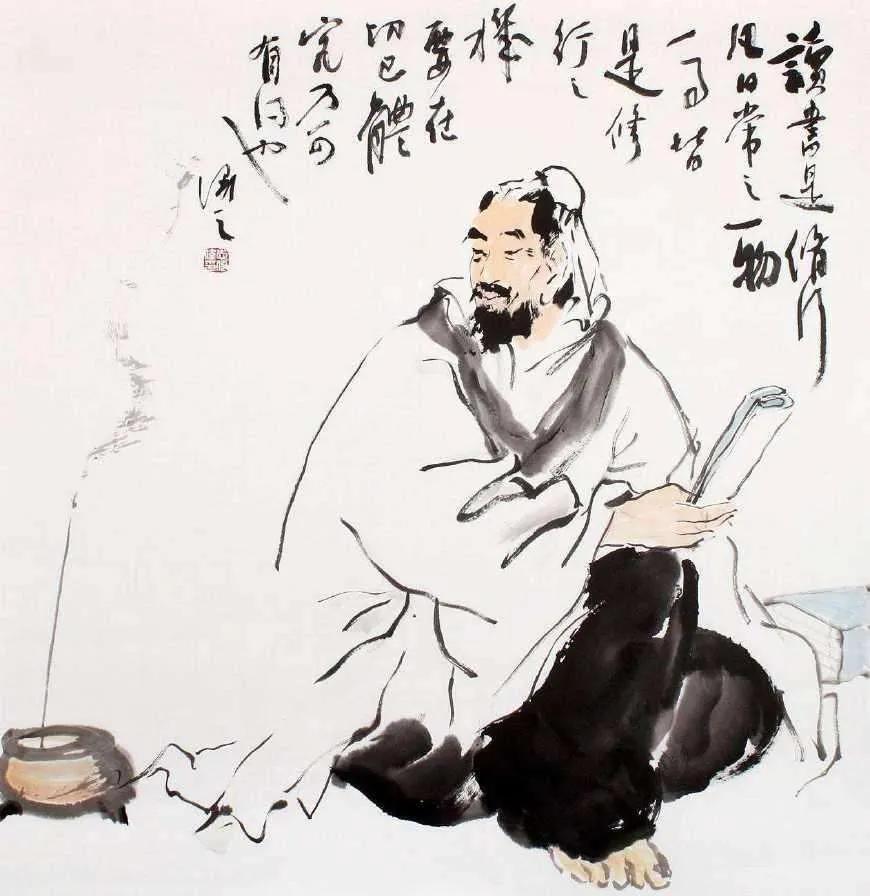 讀書是修行
但日常之一物
一事皆
是修
行之
機
要在
切己體
究乃可
有得也